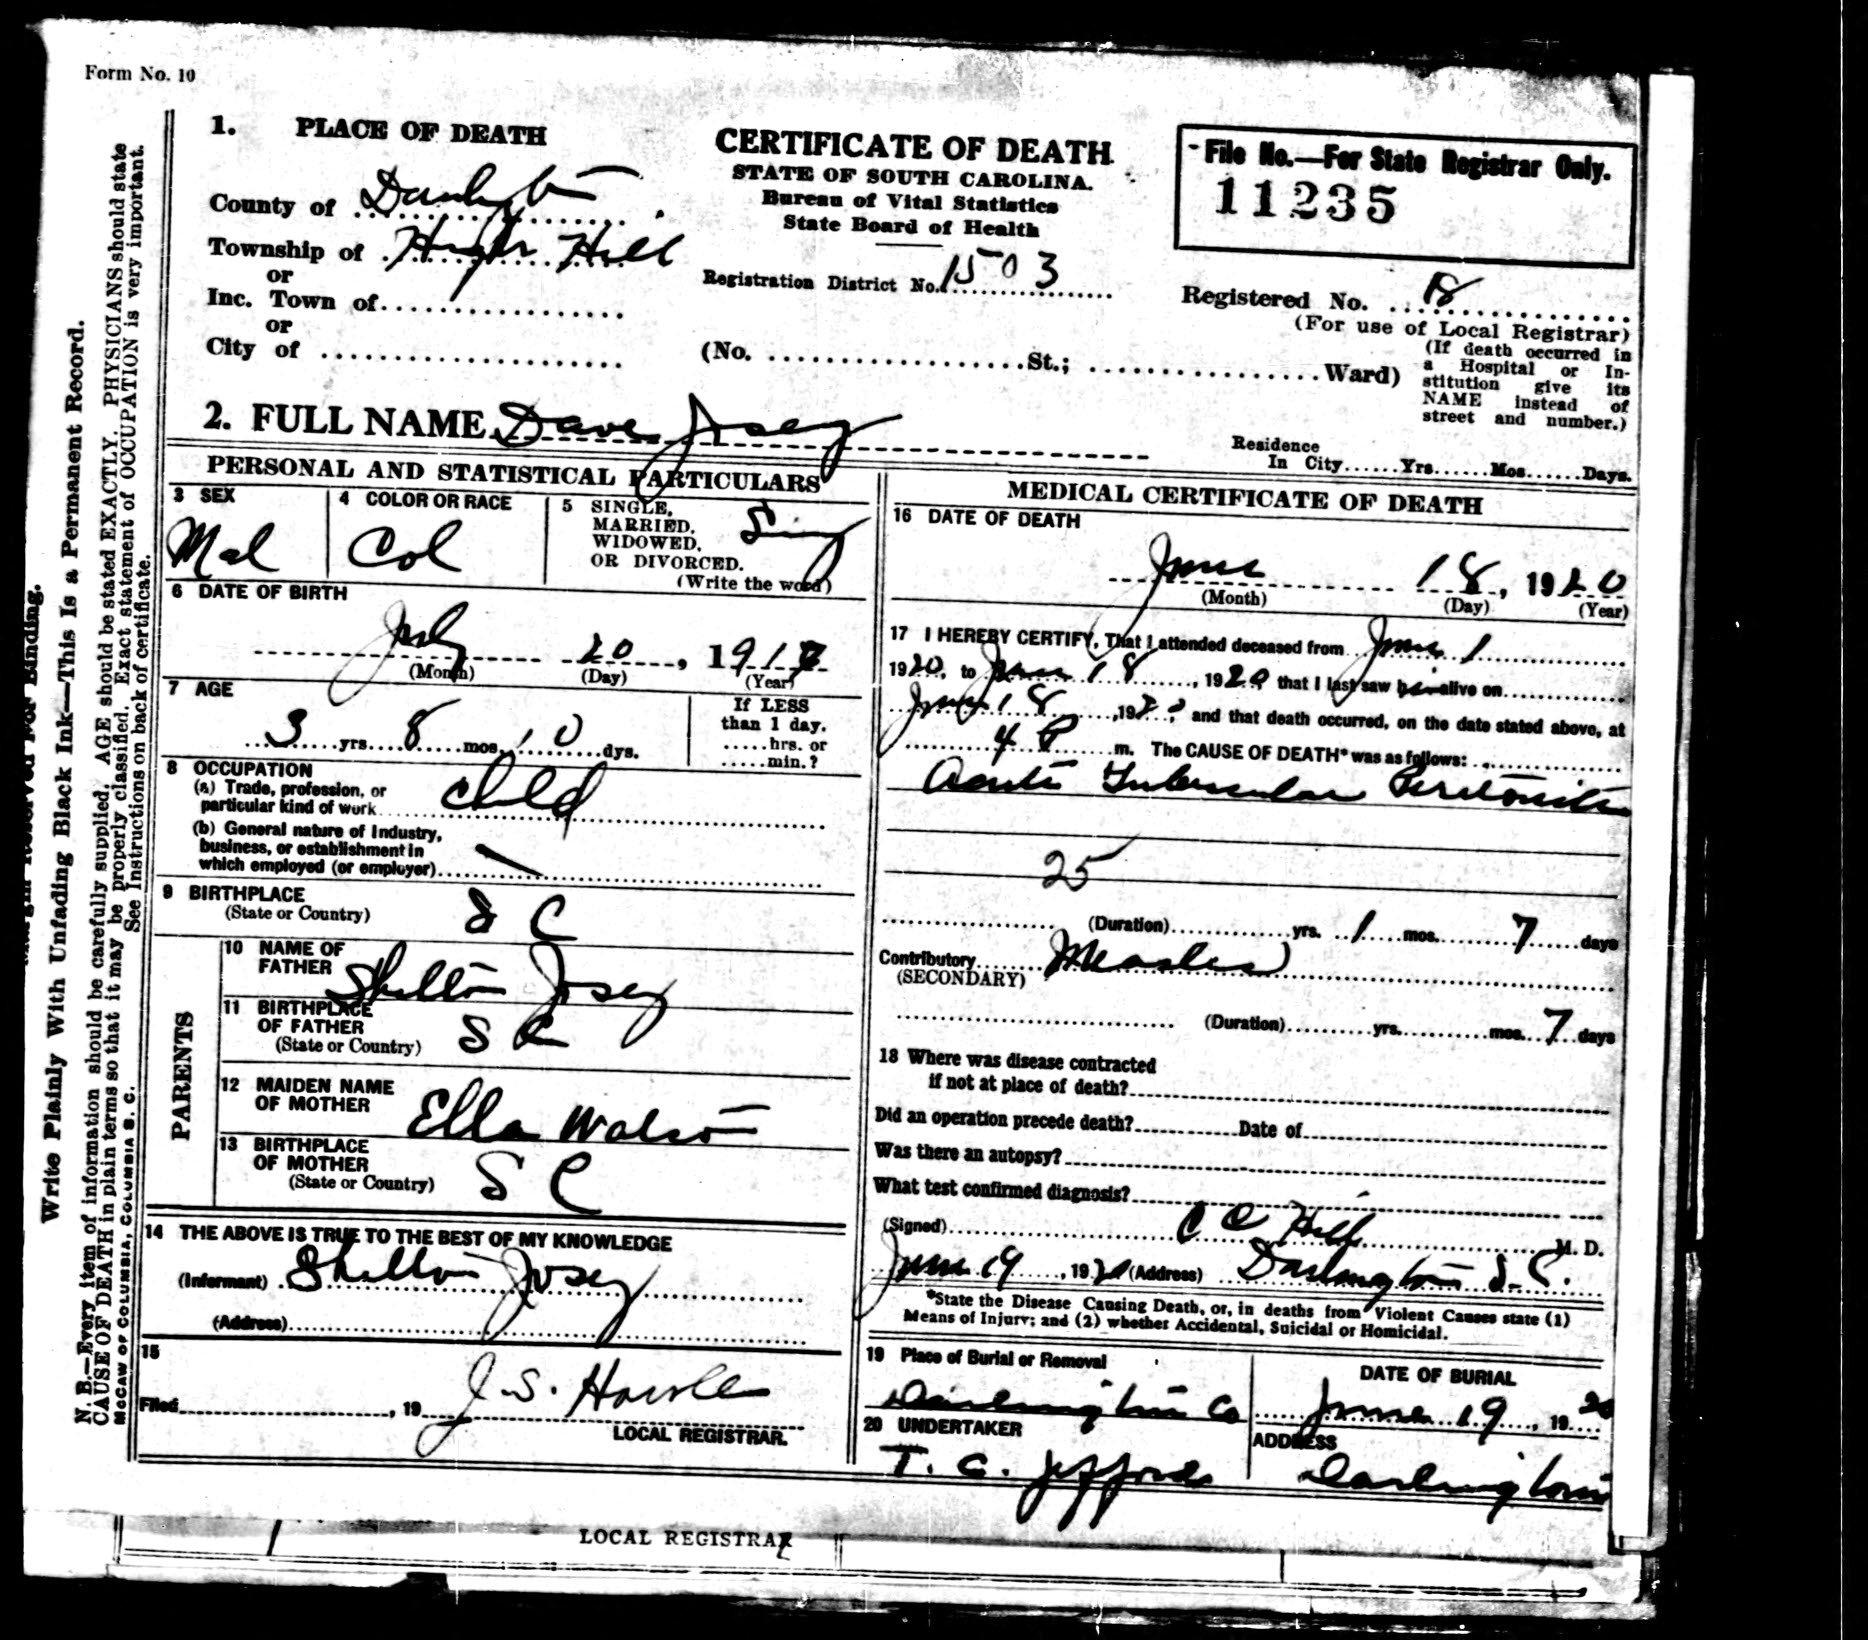 Form No. 10
1. PLACE OF DEATH
County of Darlington
Township of High Hill
or
Inc. Town of
or
City of
CERTIFICATE OF DEATH
STATE OF SOUTH CAROLINA.
Bureau of Vital Statistics
State Board of Health
Registration District No. 1503
(No. ........ St.; ........ Ward)
File No.—For State Registrar Only.
11235
Registered No. 18
(For use of Local Registrar)
(If death occurred in
a Hospital or In-
stitution give its
NAME instead of
street and number.)
2. FULL NAME Dave Josey
Residence
In City......Yrs......Mos......Days.
PERSONAL AND STATISTICAL PARTICULARS
3 SEX
Mal
4 COLOR OR RACE
Col
5 SINGLE,
MARRIED,
WIDOWED,
OR DIVORCED.
(Write the word)
Sing
6 DATE OF BIRTH
July 20, 191
(Month) (Day) (Year)
7 AGE
3 yrs. 8 mos. 10 dys.
If LESS
than 1 day.
.....hrs. or
.....min.?
8 OCCUPATION
(a) Trade, profession, or
particular kind of work child
(b) General nature of Industry,
business, or establishment in
which employed (or employer)
9 BIRTHPLACE
(State or Country) S C
PARENTS
10 NAME OF
FATHER Shelton Josey
11 BIRTHPLACE
OF FATHER
(State or Country) S C
12 MAIDEN NAME
OF MOTHER Ella
13 BIRTHPLACE
OF MOTHER
(State or Country) S C
14 THE ABOVE IS TRUE TO THE BEST OF MY KNOWLEDGE
(Informant) Shelton Josey
(Address)
15
Filed ........, 19 J. S. Howle
LOCAL REGISTRAR.
MEDICAL CERTIFICATE OF DEATH
16 DATE OF DEATH
June 18, 1920
(Month) (Day) (Year)
17 I HEREBY CERTIFY, That I attended deceased from June 1
1920, to June 18, 1920 that I last saw him alive on
June 18, 1920, and that death occurred, on the date stated above, at
4 P m. The CAUSE OF DEATH* was as follows:
Acute Tubercular Peritonitis
25
(Duration) yrs. 1 mos. 7 days
Contributory Measles
(SECONDARY)
(Duration) yrs. mos. 7 days
18 Where was disease contracted
if not at place of death?
Did an operation precede death? Date of
Was there an autopsy?
What test confirmed diagnosis?
(Signed) C C Hill M. D.
June 19, 1920 (Address) Darlington S. C.
*State the Disease Causing Death, or, in deaths from Violent Causes state (1)
Means of Injury; and (2) whether Accidental, Suicidal or Homicidal.
19 Place of Burial or Removal
Darlington Co
DATE OF BURIAL
June 19, 1920
20 UNDERTAKER
T. C. Jeffords
ADDRESS
Darlington
LOCAL REGISTRAR
Margin Reserved For Binding.
Write Plainly With Unfading Black Ink—This Is a Permanent Record.
N. B.—Every item of information should be carefully supplied. AGE should be stated EXACTLY. PHYSICIANS should state
CAUSE OF DEATH in plain terms so that it may be properly classified. Exact statement of OCCUPATION is very important.
See Instructions on back of certificate.
McCAW OF COLUMBIA, COLUMBIA S. C.